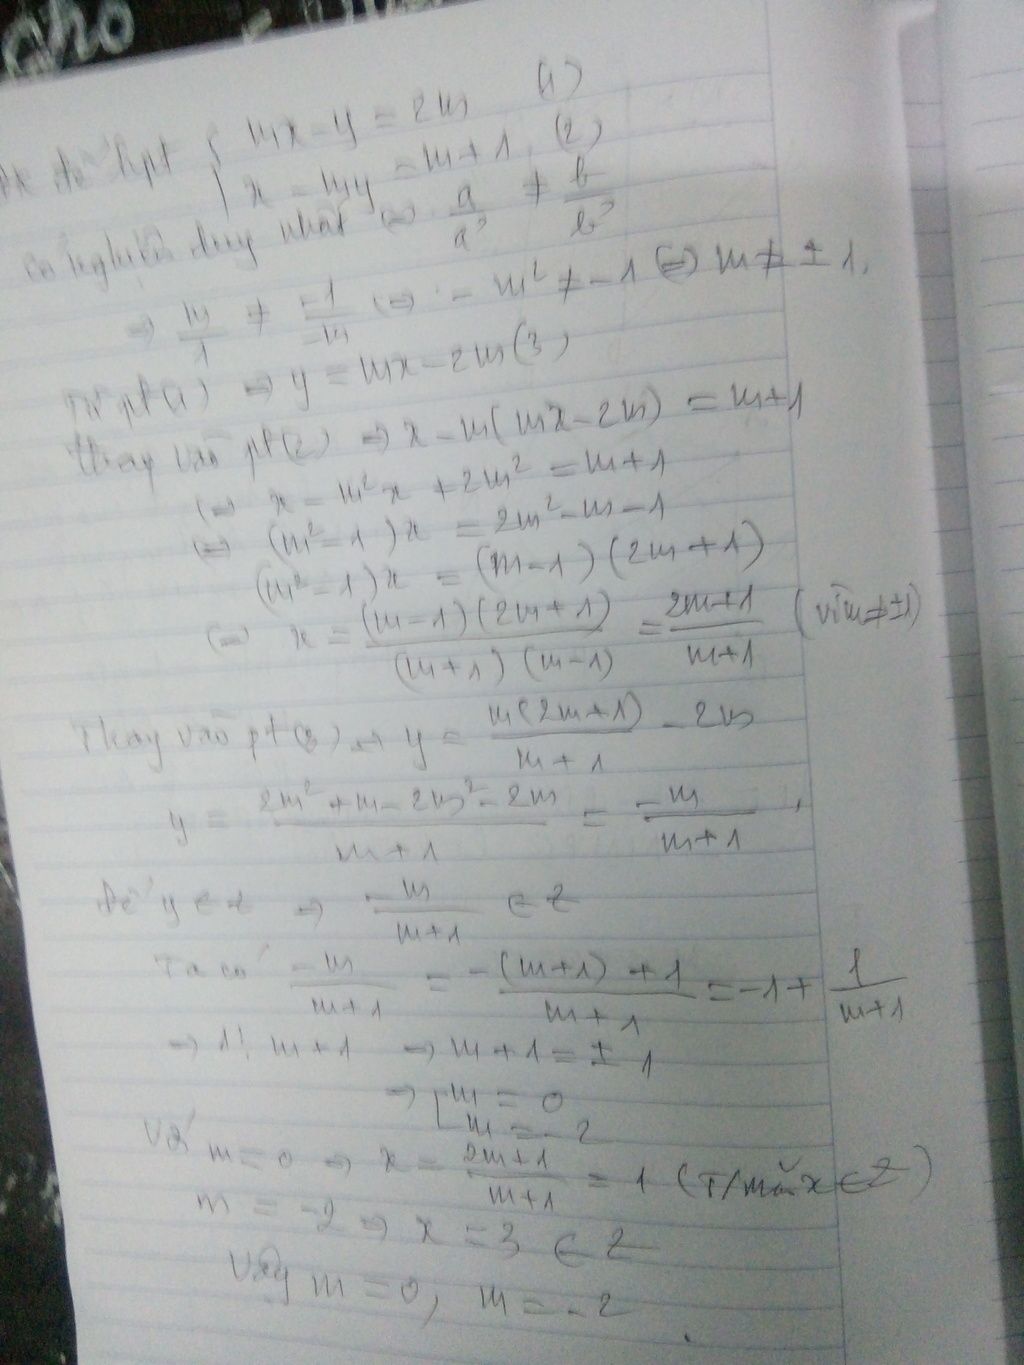 cho
ĐK để hpt { mx - y = 2m (1)
x - my = m + 1 (2)
có nghiệm duy nhất ⇔ a/a' ≠ b/b'
⇒ m/1 ≠ -1/-m ⇔ - m² ≠ - 1 ⇔ m ≠ ± 1.
Từ pt(1) ⇒ y = mx - 2m (3)
thay vào pt(2) ⇒ x - m(mx - 2m) = m+1
⇔ x - m²x + 2m² = m+1
⇔ (m² - 1)x = 2m² - m - 1
(m² - 1)x = (m - 1)(2m + 1)
⇔ x = (m-1)(2m+1)/(m+1)(m-1) = 2m+1/m+1 (vì m ≠ ±1)
Thay vào pt(3) ⇒ y = m(2m+1)/m+1 - 2m
y = 2m² + m - 2m² - 2m/m+1 = -m/m+1,
Để y ∈ Z ⇒ -m/m+1 ∈ Z
Ta có -m/m+1 = -(m+1)+1/m+1 = -1 + 1/m+1
⇒ 1 ⋮ m+1 ⇒ m+1 = ± 1
⇒ [ m = 0
m = - 2
Với m = 0 ⇒ x = 2m+1/m+1 = 1 (T/mãn x ∈ Z)
m = -2 ⇒ x = 3 ∈ Z
Vậy m = 0, m = - 2